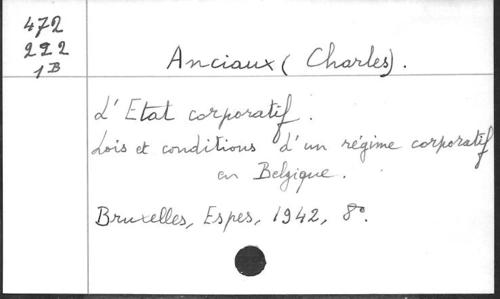 472
222
1B
Anciaux (Charles).
L'Etat corporatif.
Lois et conditions d'un régime corporatif
en Belgique.
Bruxelles, Espes, 1942, 8º.